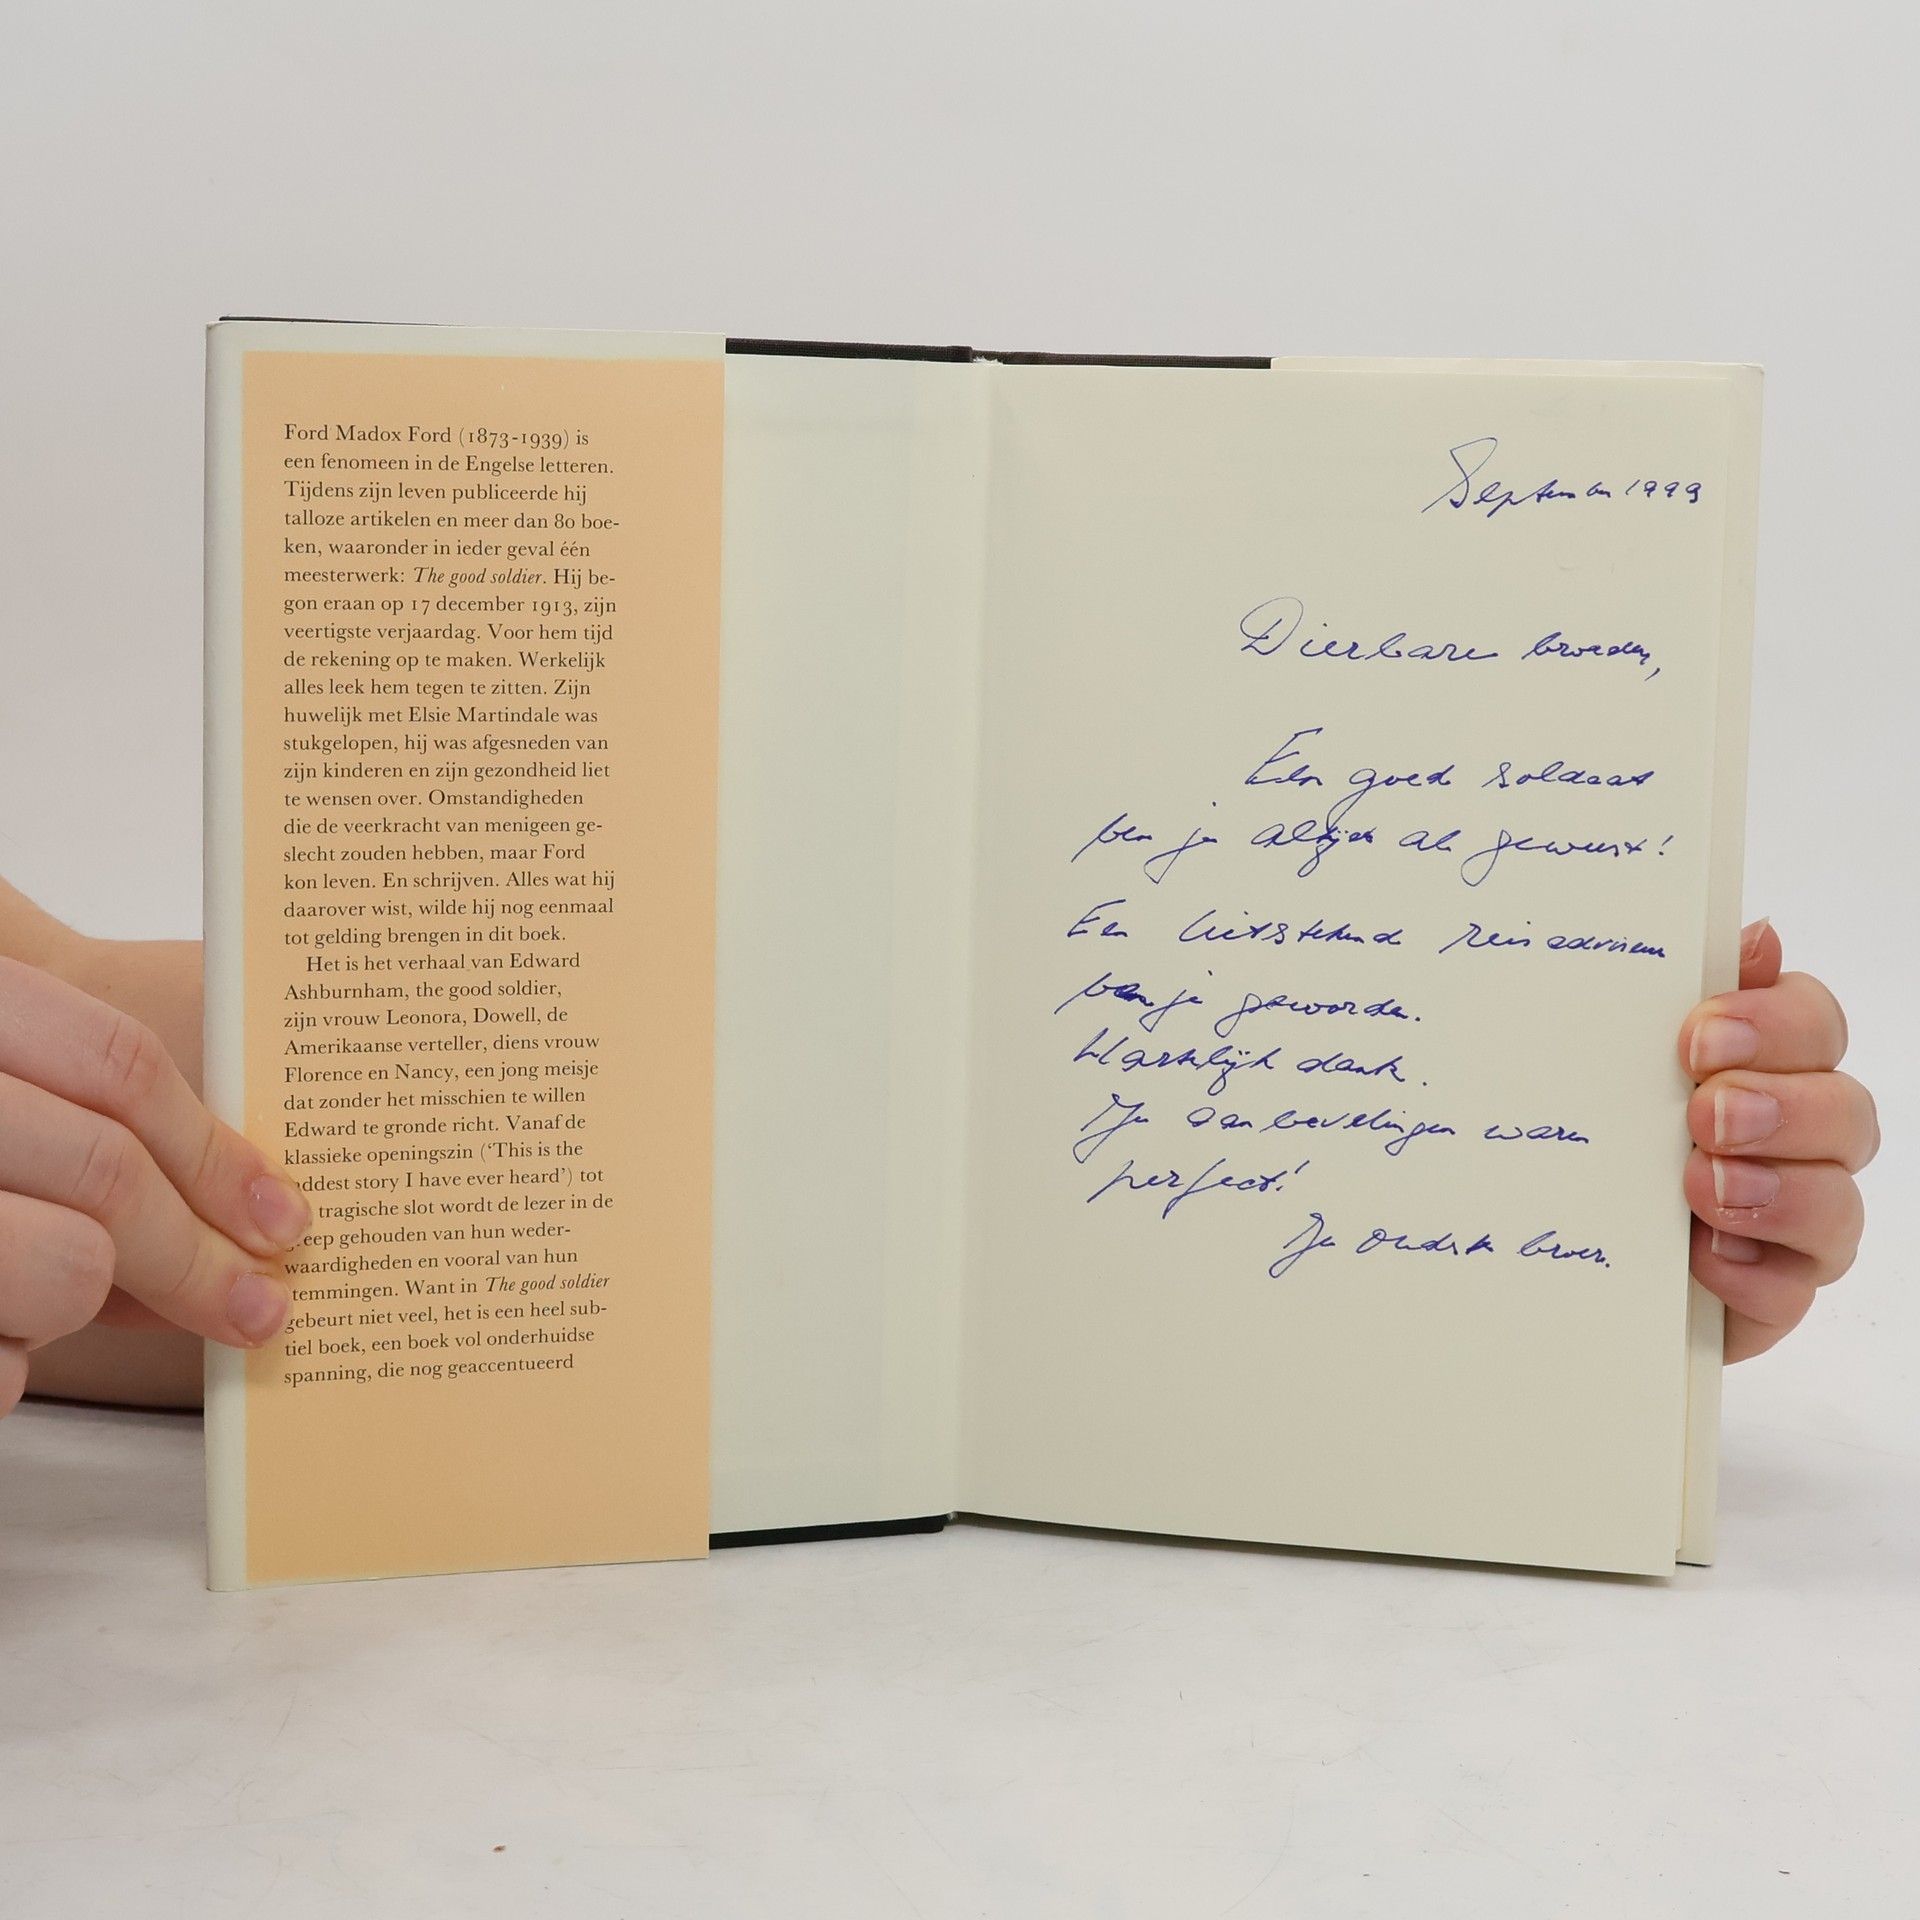 Ford Madox Ford (1873-1939) is
een fenomeen in de Engelse letteren.
Tijdens zijn leven publiceerde hij
talloze artikelen en meer dan 80 boe-
ken, waaronder in ieder geval één
meesterwerk: The good soldier. Hij be-
gon eraan op 17 december 1913, zijn
veertigste verjaardag. Voor hem tijd
de rekening op te maken. Werkelijk
alles leek hem tegen te zitten. Zijn
huwelijk met Elsie Martindale was
stukgelopen, hij was afgesneden van
zijn kinderen en zijn gezondheid liet
te wensen over. Omstandigheden
die de veerkracht van menigeen ge-
slecht zouden hebben, maar Ford
kon leven. En schrijven. Alles wat hij
daarover wist, wilde hij nog eenmaal
tot gelding brengen in dit boek.
Het is het verhaal van Edward
Ashburnham, the good soldier,
zijn vrouw Leonora, Dowell, de
Amerikaanse verteller, diens vrouw
Florence en Nancy, een jong meisje
dat zonder het misschien te willen
Edward te gronde richt. Vanaf de
klassieke openingszin ('This is the
addest story I have ever heard') tot
tragische slot wordt de lezer in de
greep gehouden van hun weder-
waardigheden en vooral van hun
temmingen. Want in The good soldier
gebeurt niet veel, het is een heel sub-
tiel boek, een boek vol onderhuidse
spanning, die nog geaccentueerd
September 1999
Dierbare broeder,
Een goede soldaat
ben je altijd al geweest!
Een uitstekend reisadviseur
ben je geworden.
Hartelijk dank.
Je aanbevelingen waren
perfect!
Je oudste broer.